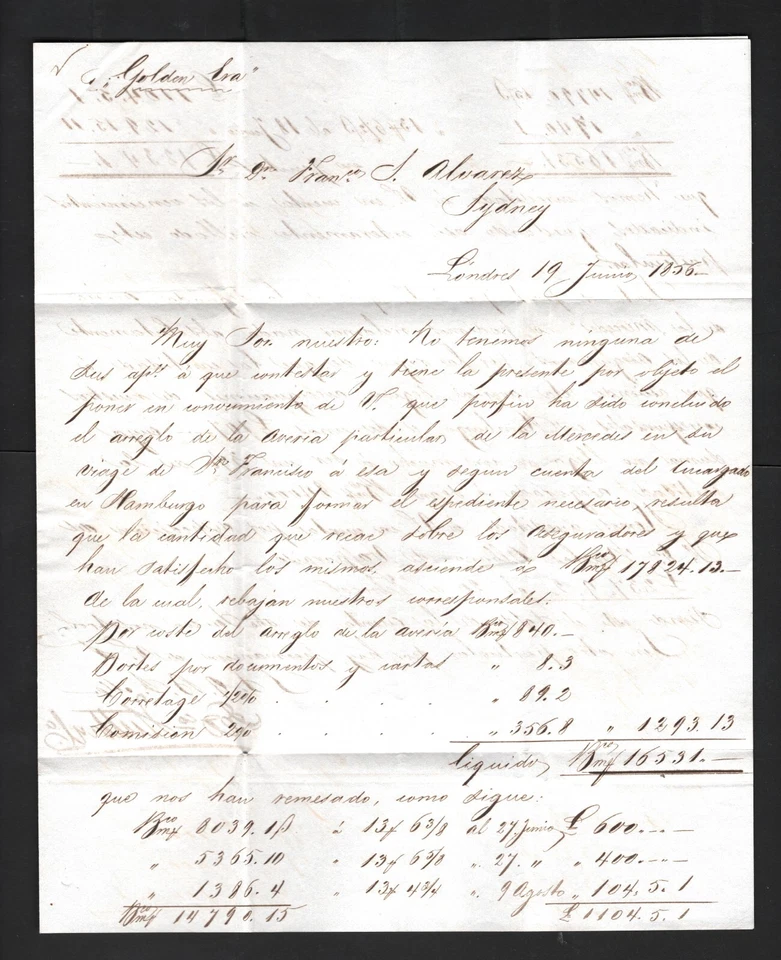 p. "Golden Era"
Sr. Dn. Franco. S. Alvarez
Sydney
Lóndres 19 Junio 1856.—
Muy Sor. nuestro: No tenemos ninguna de
sus apds. á que contestar y tiene la presente por objeto el
poner en conocimiento de V. que porfin ha sido concluido
el arreglo de la averia particular de la Mercedes en su
viage de Sn. Francisco á esa y segun cuenta del Encargado
en Hamburgo para formar el espediente necesario, resulta
que la cantidad que recae sobre los aseguradores y que
han satisfecho los mismos, asciende á Bco mf 17824.13.—
de la cual, rebajan nuestros corresponsales:
Por coste del arreglo de la averia Bco mf 840.—
Portes por documentos y cartas " 8.3
Corretage ½% . . . . " 89.2
Comision 2% . . . . " 356.8 " 1293.13
liquido Bco mf 16531.—
que nos han remesado, como sigue:
Bco mf 8039.1ß á 13f 6 3/8 al 27. Junio £ 600.-.-
" 5365.10 " 13f 6 5/8 ". 27. " " 400.-.-
" 1386.4 " 13f 4 3/4 ". 9 Agosto " 104.5.1
Bco mf 14790.15 £ 1104.5.1